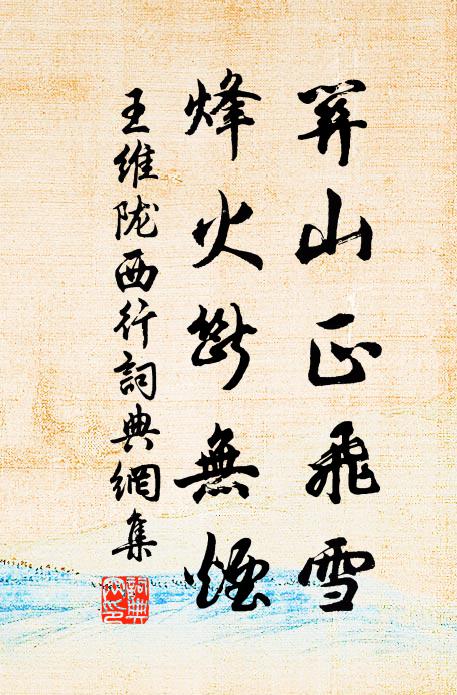 關山正飛雪
烽火斷無煙
王維陇西行詞典網集